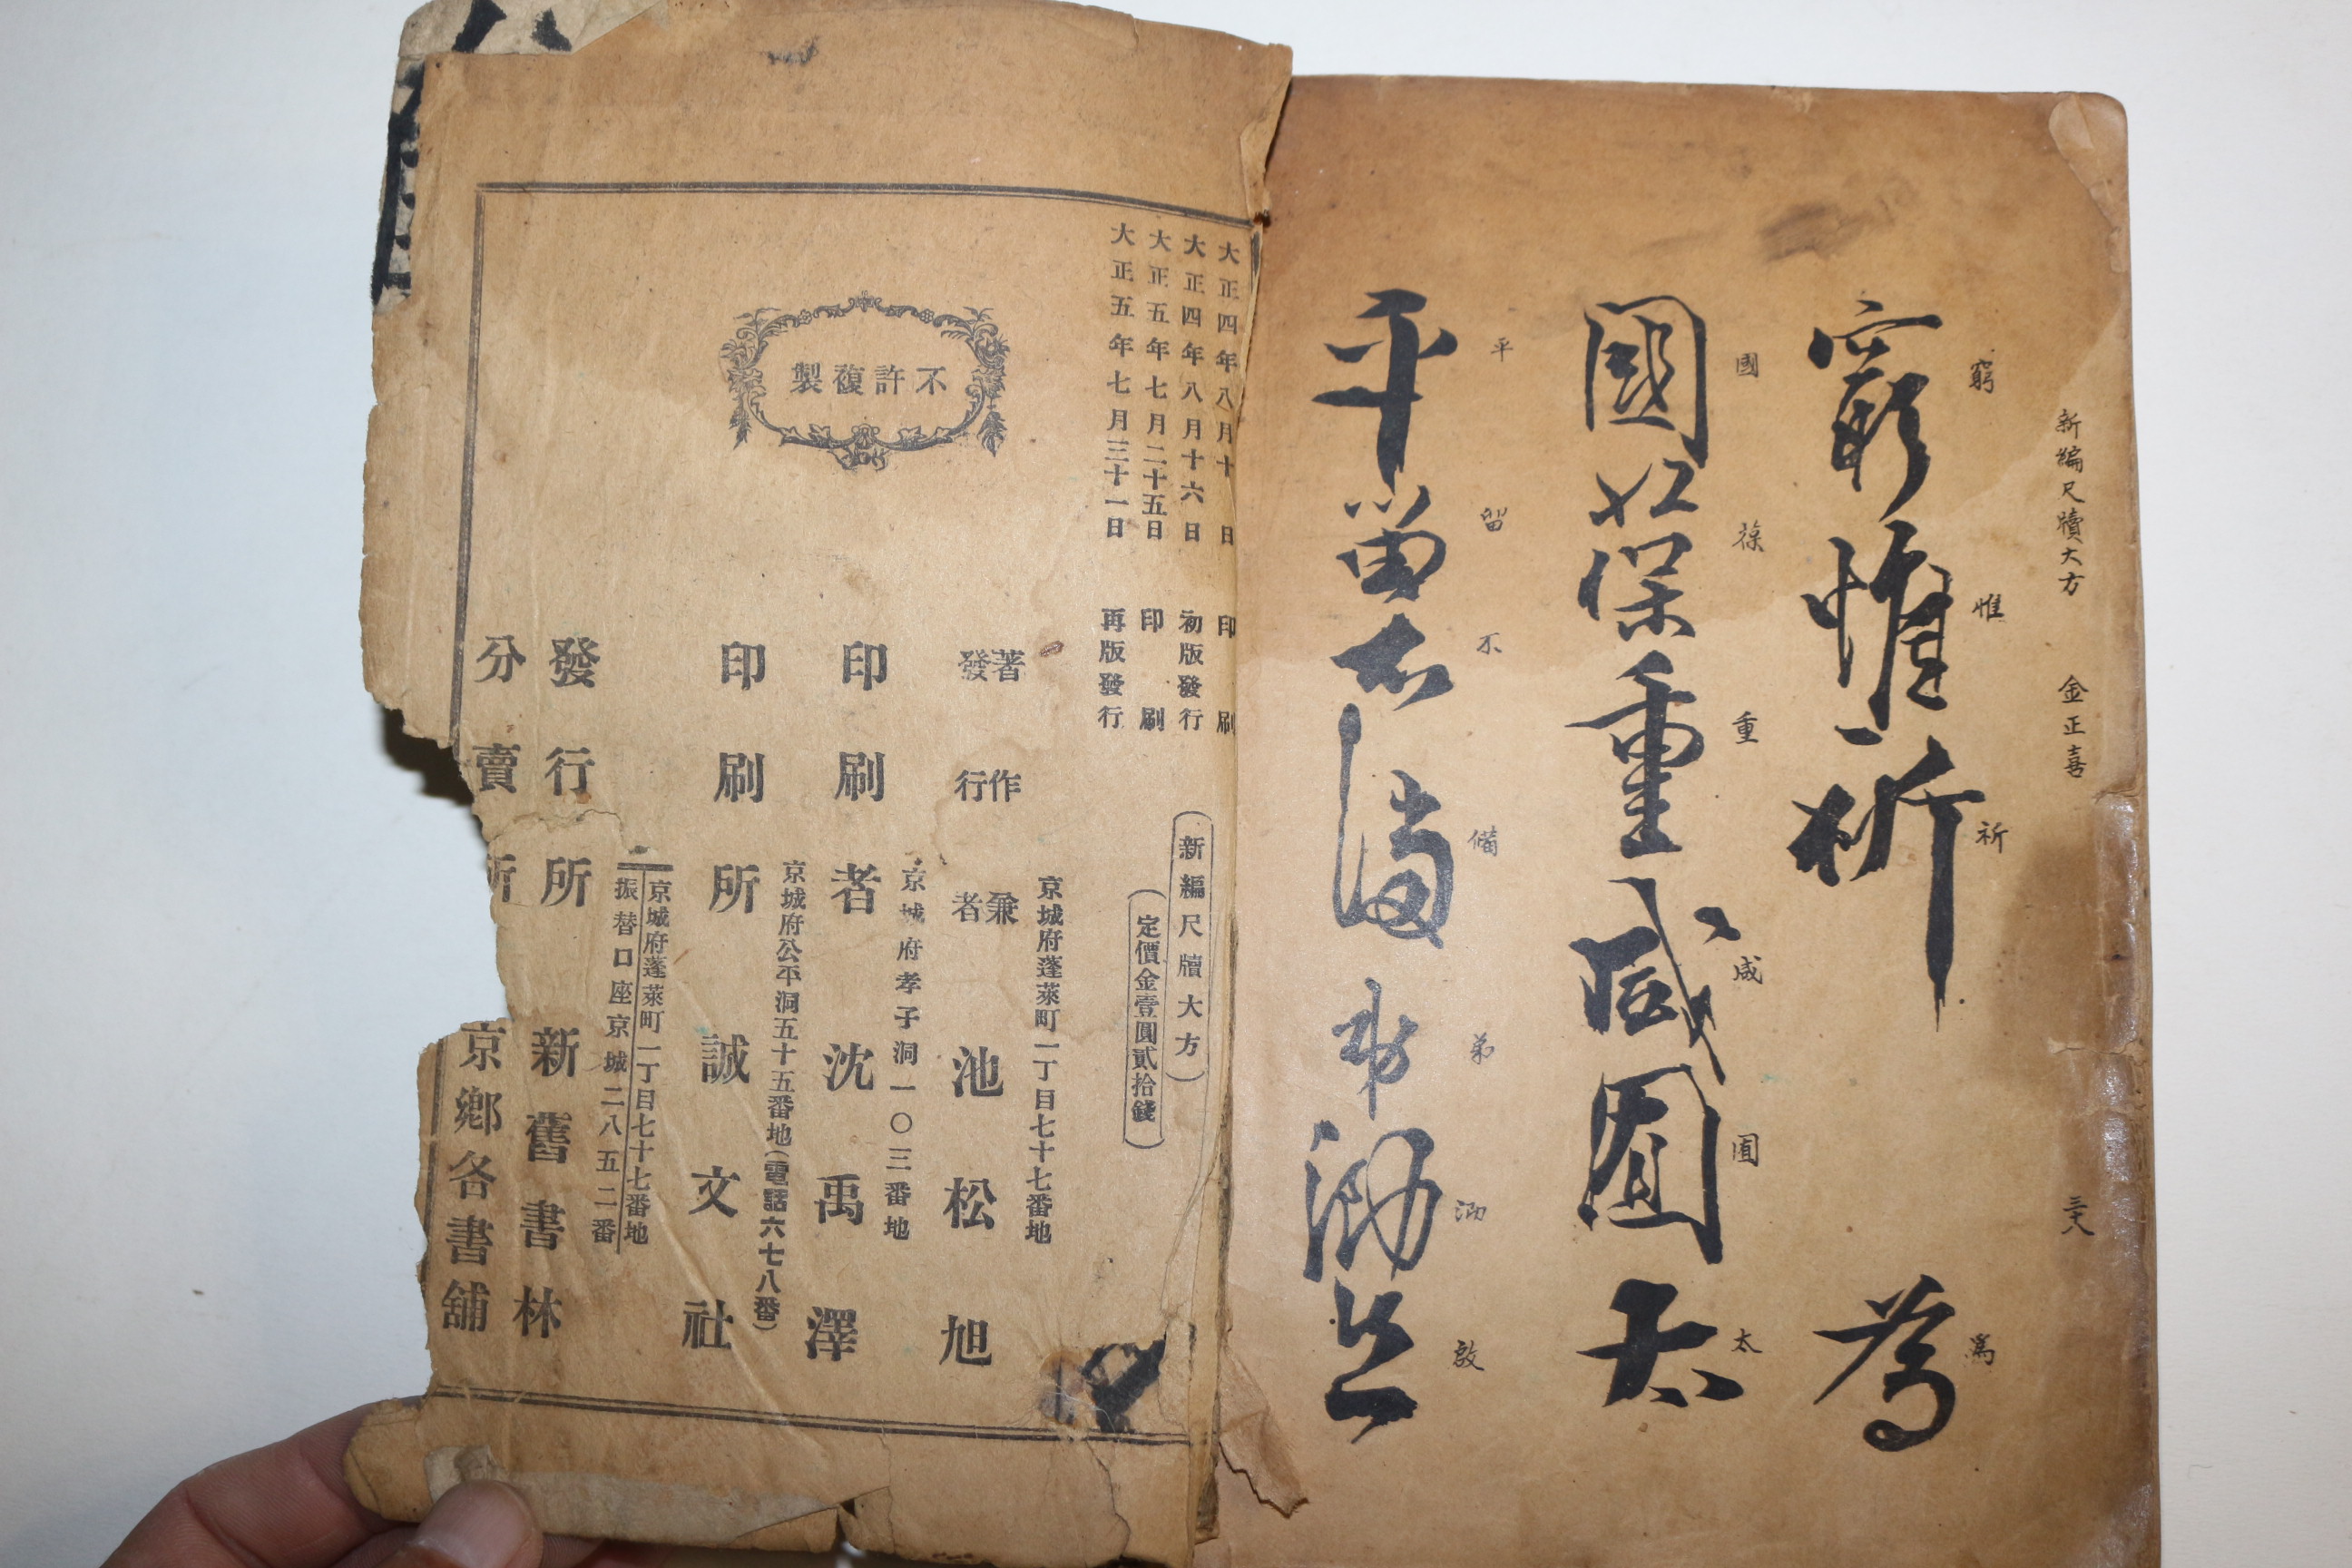 新編尺牘大方 金正喜 三十八
窮惟祈 爲
窮 惟 祈 爲
國葆重咸囿太
國 葆 重 咸 囿 太
平留不備弟泐啟
平 留 不 備 弟 泐 啟
大正四年八月十日 印刷
大正四年八月十六日 初版發行
大正五年七月二十五日 印刷
大正五年七月三十一日 再版發行
(新編尺牘大方)
(定價金壹圓貳拾錢)
不許複製
京城府蓬萊町一丁目七十七番地
著作兼
發行者 池松旭
京城府孝子洞一〇三番地
印刷者 沈禹澤
京城府公平洞五十五番地(電話六七八番)
印刷所 誠文社
京城府蓬萊町一丁目七十七番地
振替口座京城二八五二番
發行所 新舊書林
分賣所 京鄉各書舖